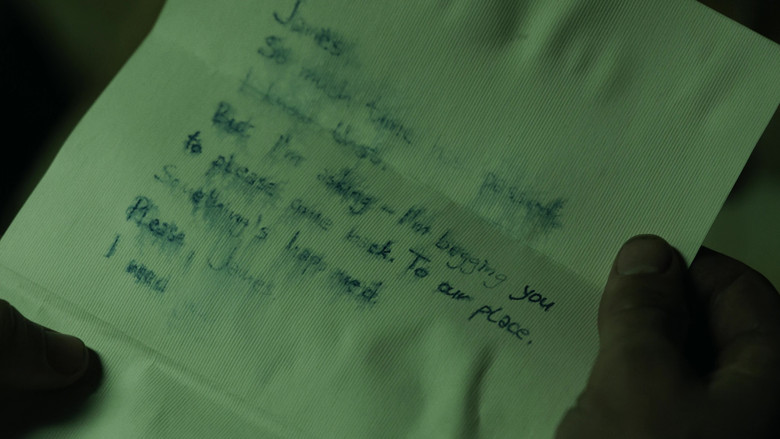 James
So much time has passed.
I know that.
But I'm asking - I'm begging you
to please come back. To our place.
Something's happened.
Please, James
I need you